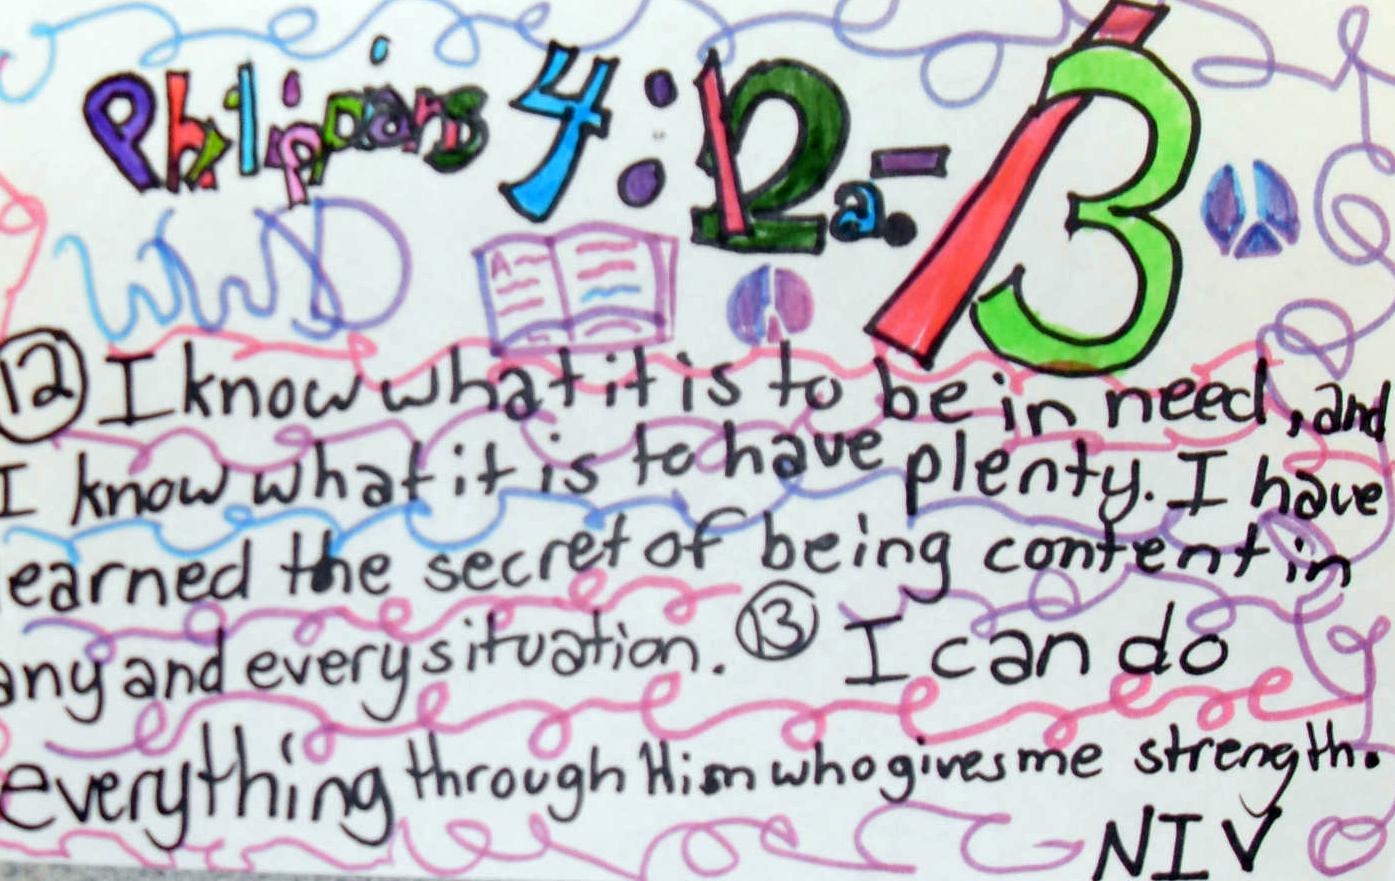 Philippians 4:12a.-13
WWJD
A
12 I know what it is to be in need, and
I know what it is to have plenty. I have
learned the secret of being content in
any and every situation. 13 I can do
everything through Him who gives me strength.
NIV